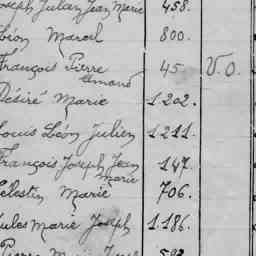 Joseph Julien Jean Marie 458.
Léon Marcel 800.
François Pierre 45. V.O.
Armand
Désiré Marie 1202.
Louis Léon Julien 1211.
François Joseph Jean 147.
Marie
Célestin Marie 706.
Jules Marie Joseph 1.186.
Pierre Marie